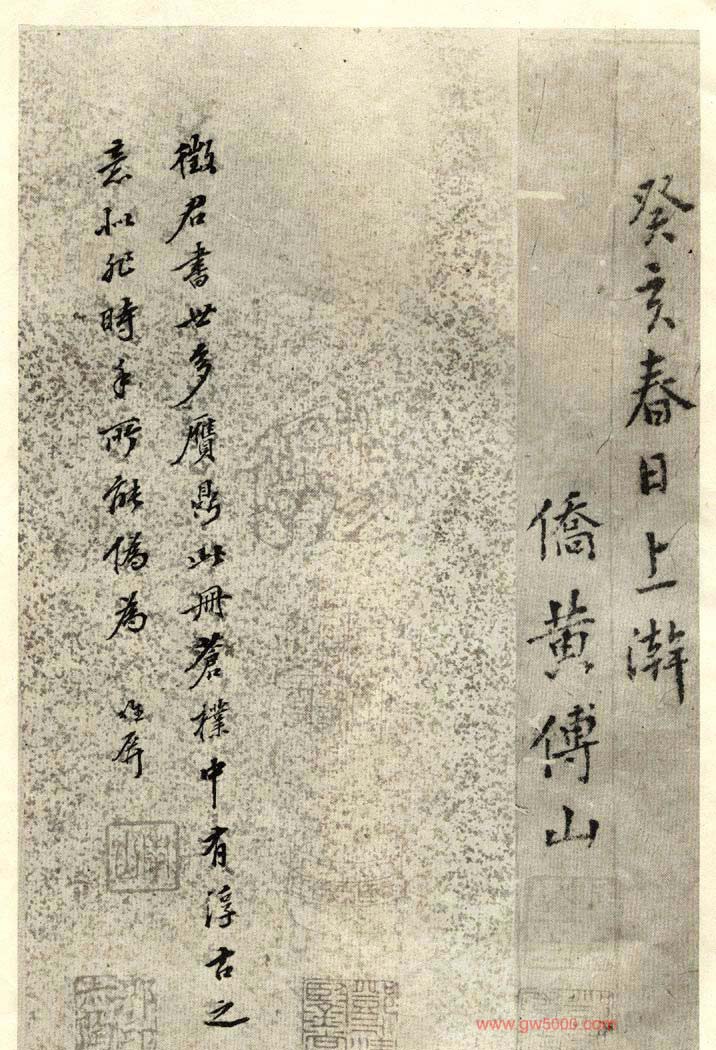 癸亥春日上澣
僑黃傅山
徵君書世多贋鼎此冊蒼樸中有淳古之
意似非時手所能偽為 屏
www.gw5000.com